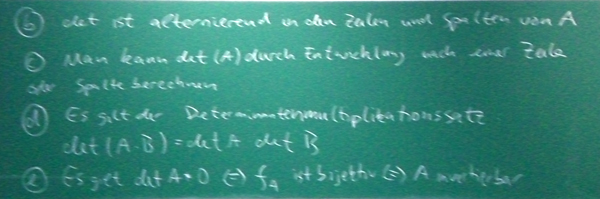 (b) det ist alternierend in den Zeilen und Spalten von A
(c) Man kann det (A) durch Entwicklung nach einer Zeile
oder Spalte berechnen
(d) Es gilt der Determinantenmultiplikationssatz
det (A·B) = det A det B
(e) Es gilt det A ≠ 0 ⇔ f_A ist bijektiv ⇔ A invertierbar